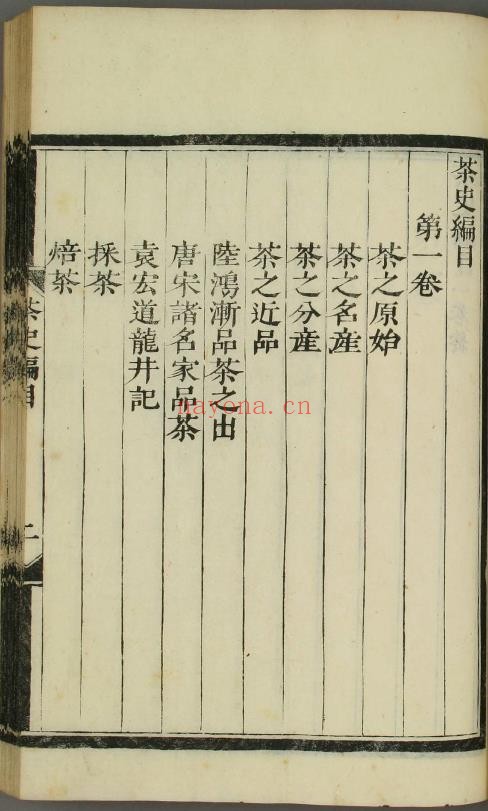 茶史編目
第一卷
茶之原始
茶之名産
茶之分産
茶之近品
陸鴻漸品茶之出
唐宋諸名家品茶
袁宏道龍井記
採茶
焙茶
茶史編目
nayona.cn